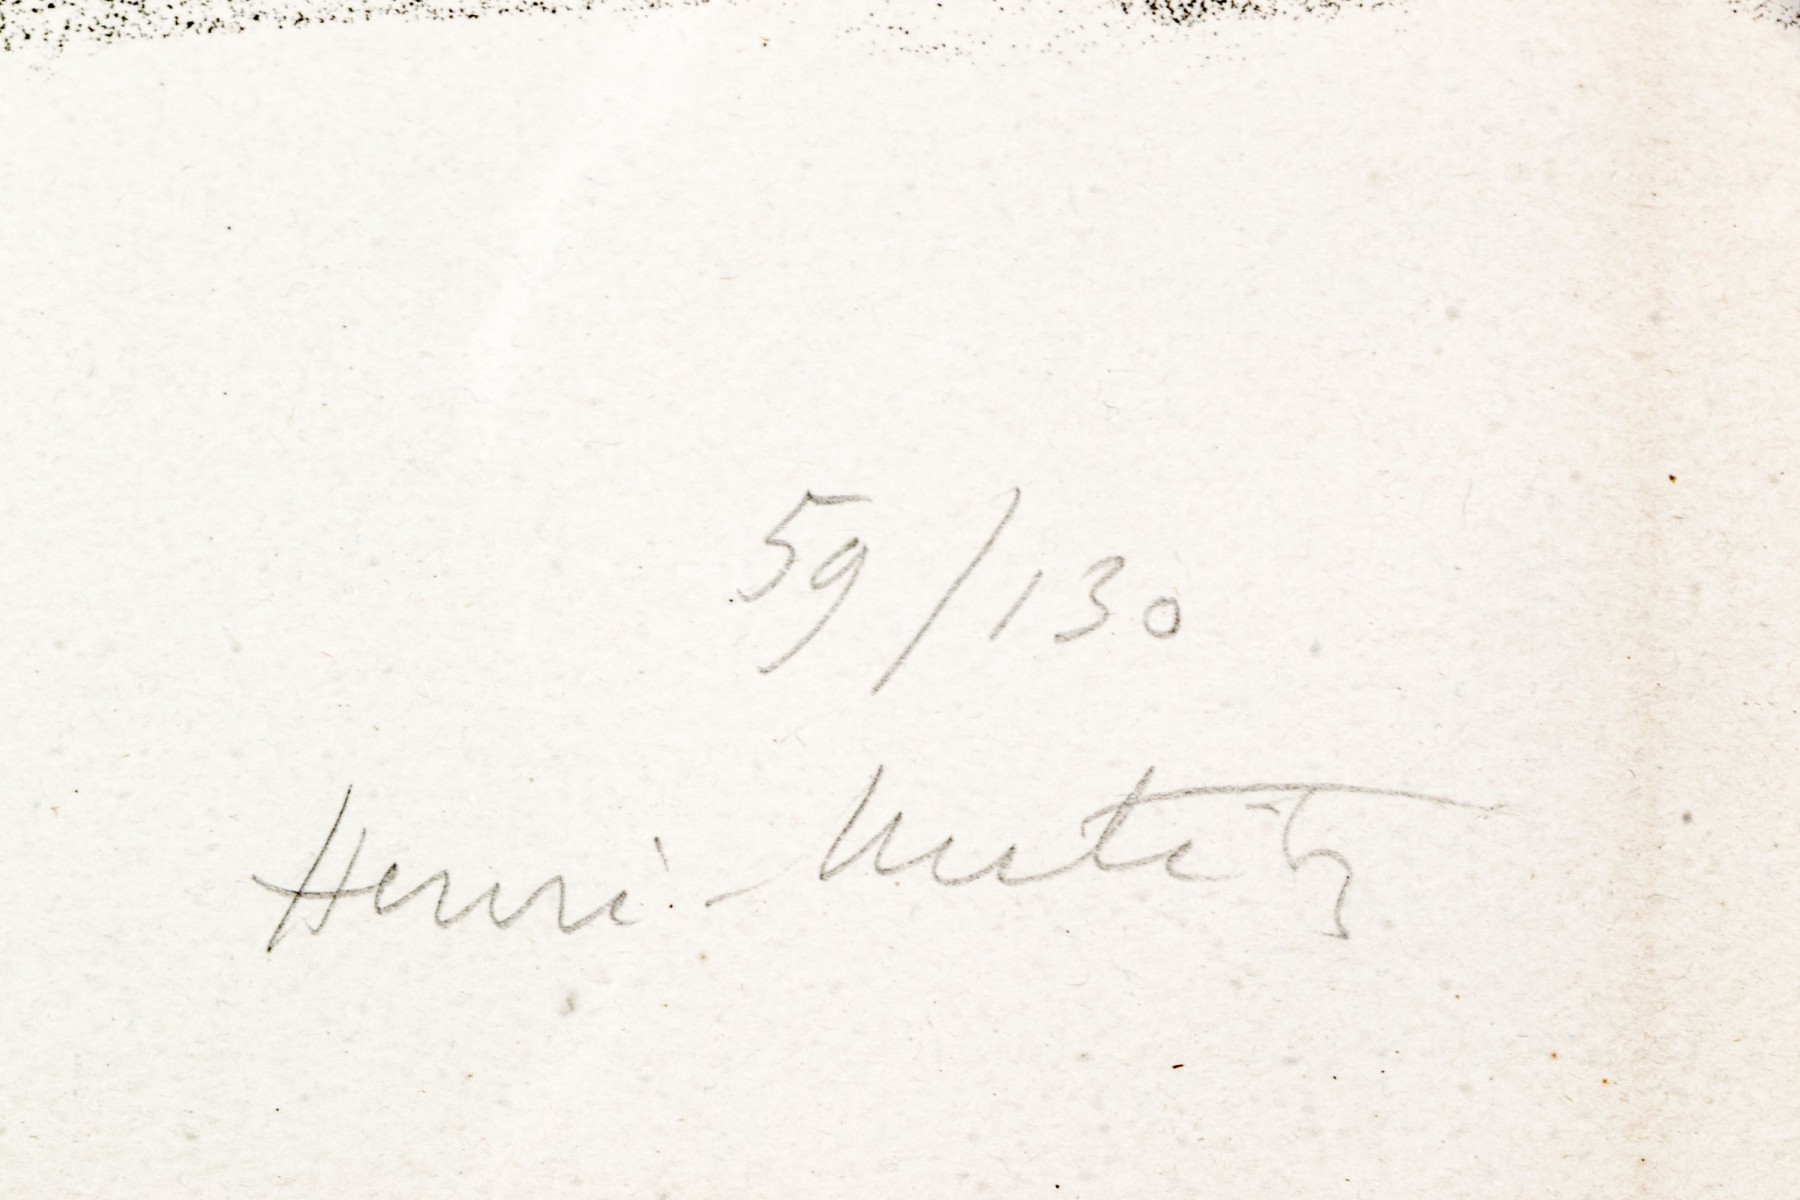 59/130
Henri-Matisse